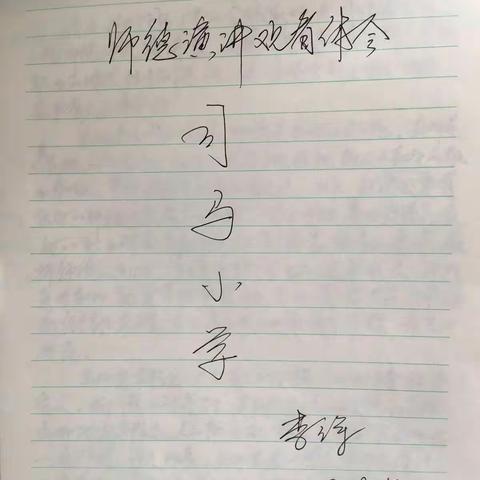 师德演讲观看体会
司
马
小
学